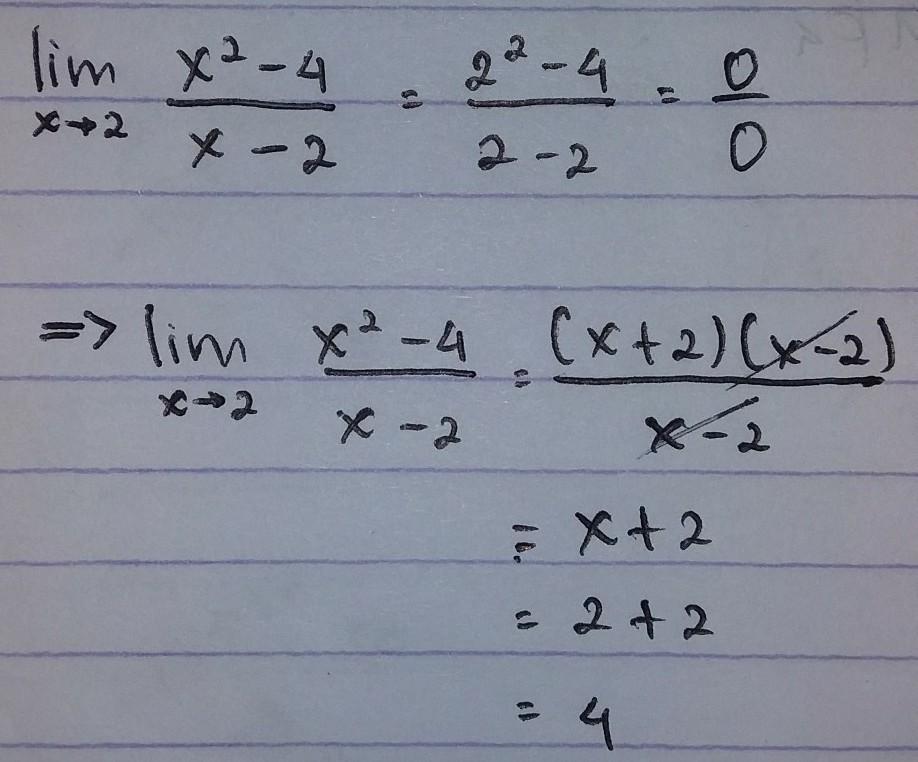 lim x→2 (x² - 4)/(x - 2) = (2² - 4)/(2 - 2) = 0/0
=> lim x→2 (x² - 4)/(x - 2) = ((x + 2)(x - 2))/(x - 2)
= x + 2
= 2 + 2
= 4